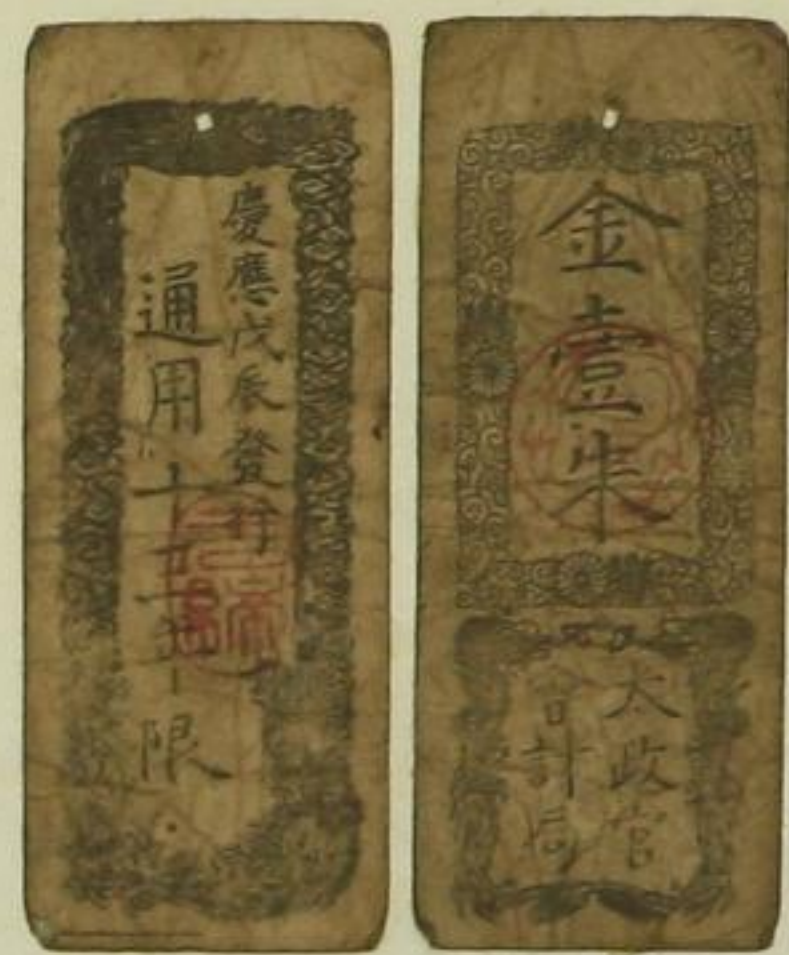 慶應戊辰發行
通用十三年限
金壹朱
太政官
會計局